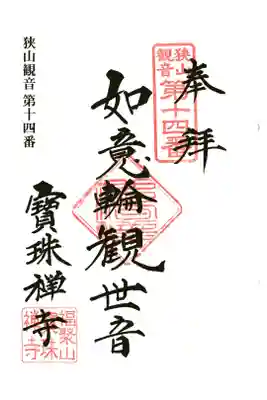 奉拝
狭山
観音
第十四番
如意輪観世音
寳珠禅寺
福聚山
狭山観音 第十四番